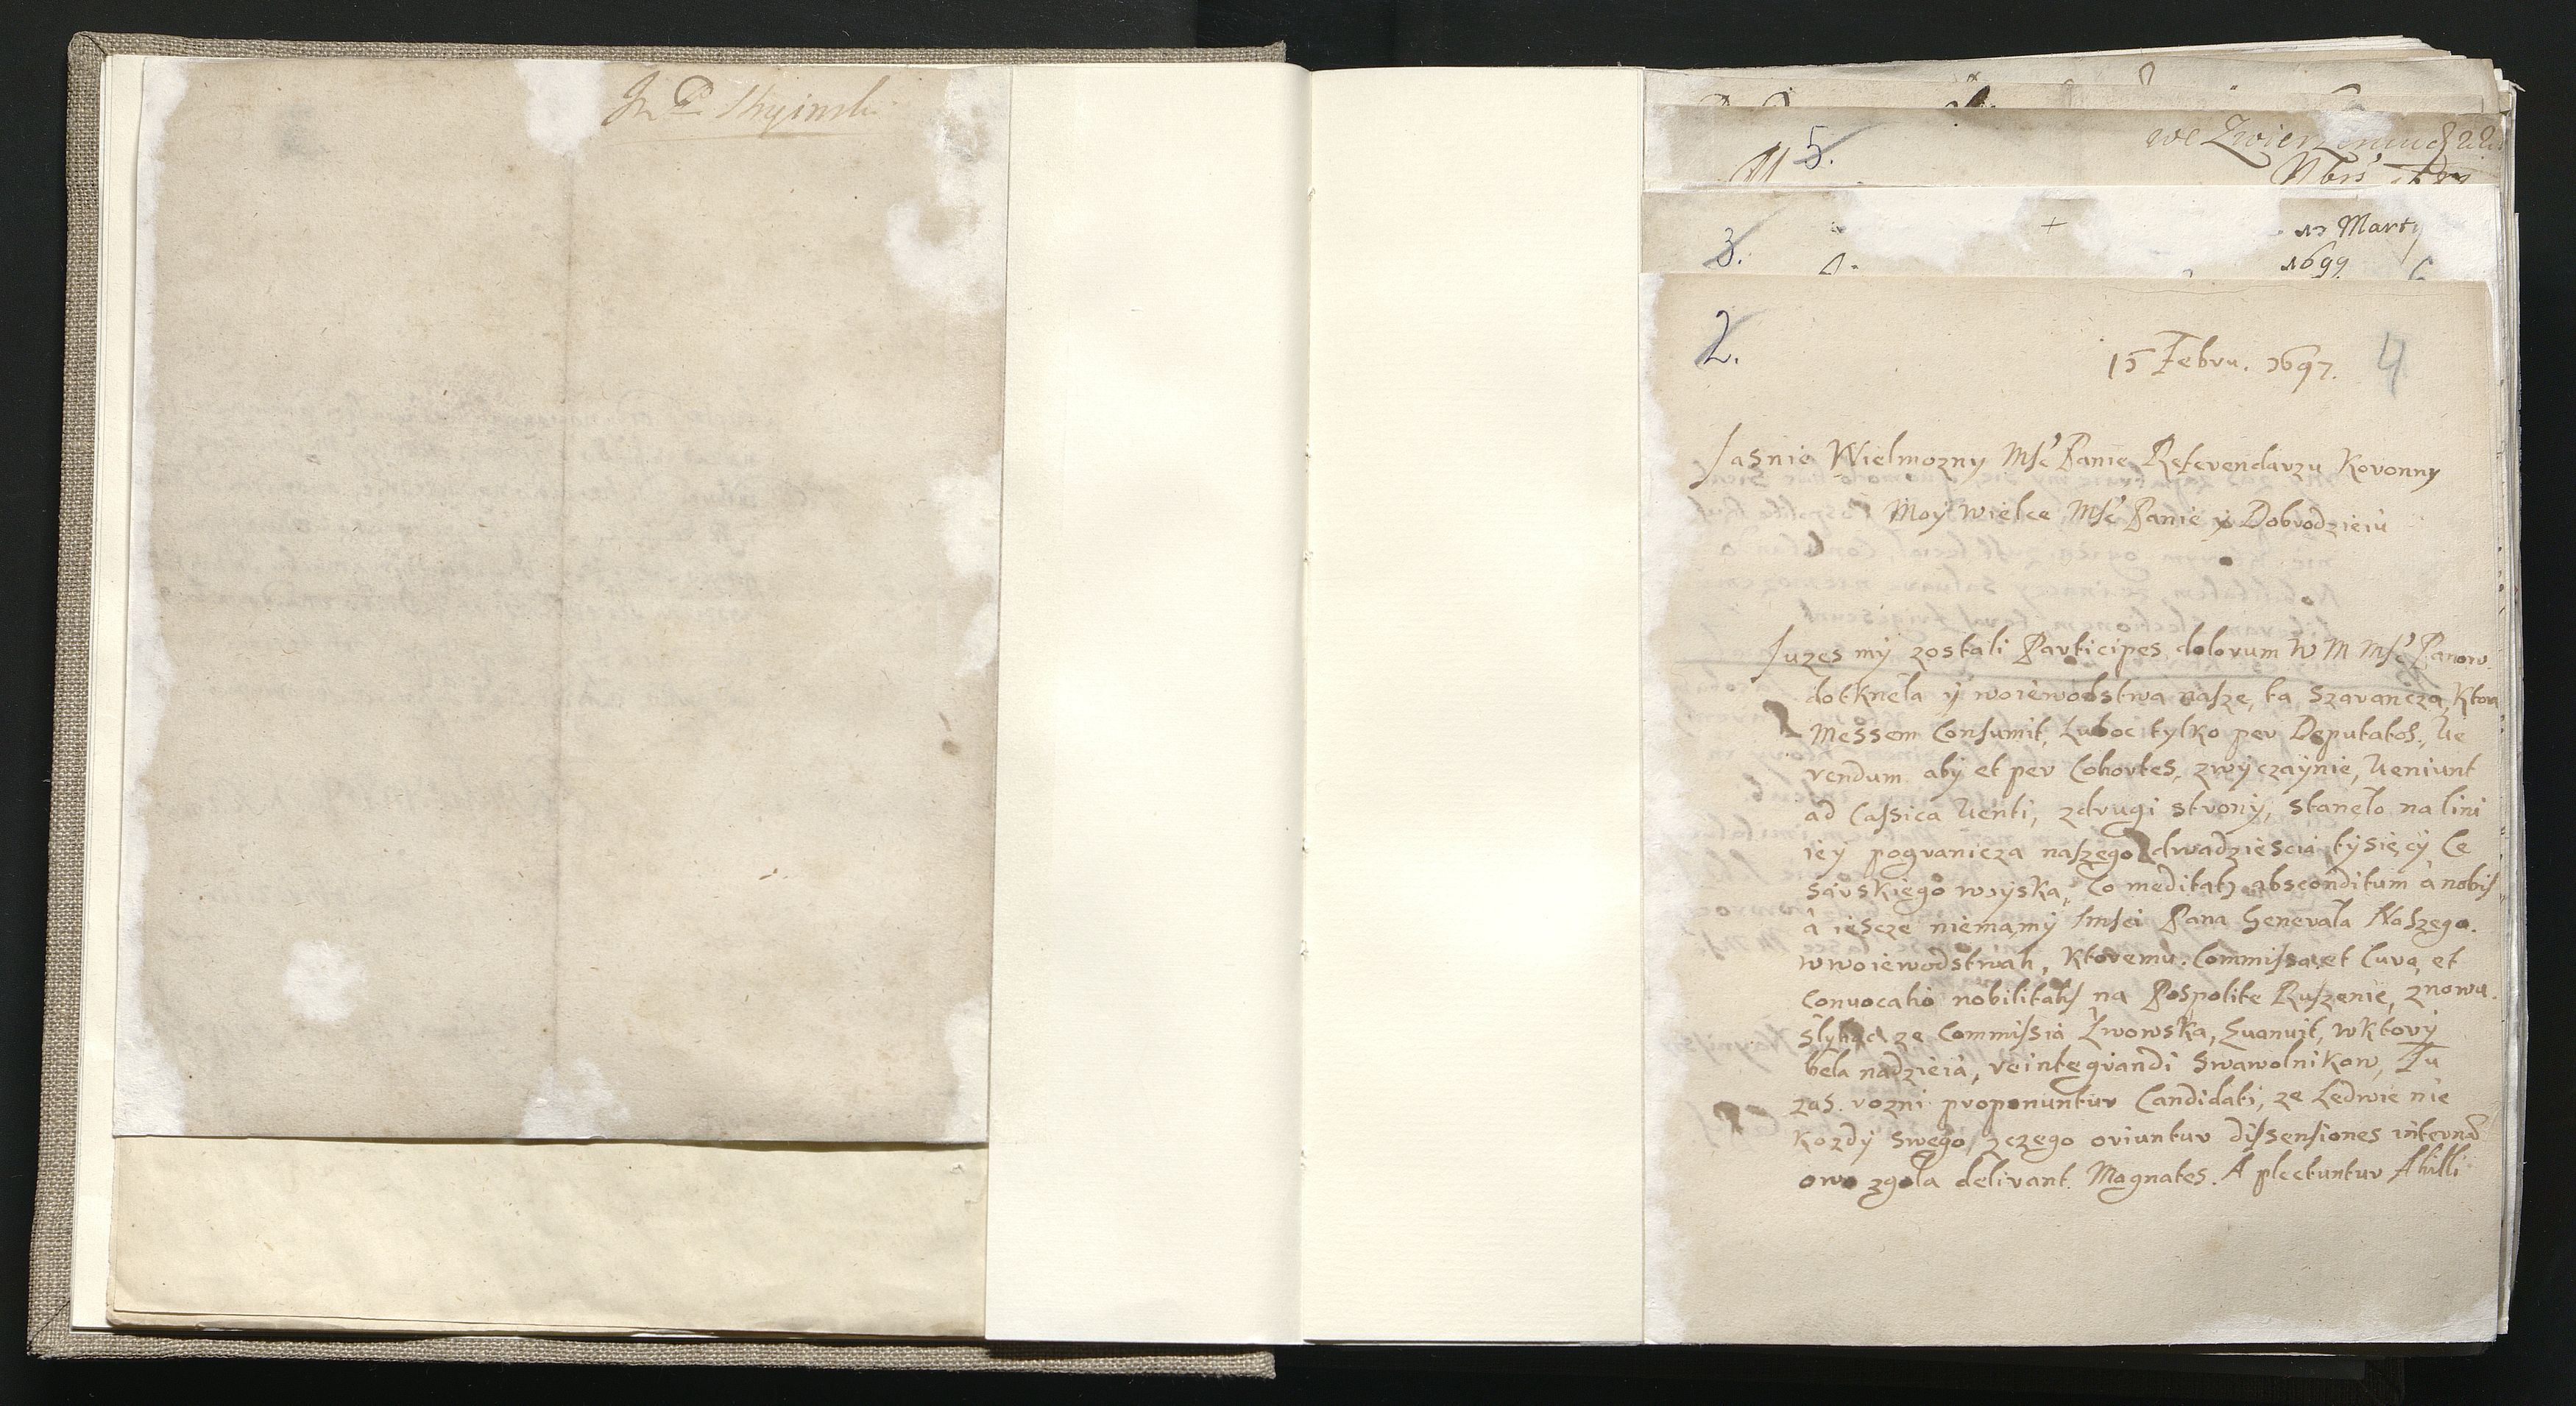 JPP
5.
we
3.
+
13 Marty
1699
2.
15 Febru. 1697. 4
Jasnie Wielmozny Msc Panie Referendarzu Koronny
Moy Wielce Msc Panie y Dobrodzieiu
Juzes my zostali Participes dolorum W M Msc Panow.
dotkneła y woiewodstwa nasze, ta szarancza, Ktora
Messem Consumit, Luboc tylko per Deputatos, Ve
rendum aby et per Cohortes, zwyczaynie, Veniunt
ad Classica Venti, zdrugi strony, staneło na lini
iey pogranicza naszego dwadziescia tysięcy Ce
sarskiego woyska, Co meditatz absconditum a nobis
a iescze niemamy Imsci Pana Generała Naszego.
wwoiewodstwah, Ktoremu Commissa et Cura, et
Convocatio nobilitatis na Pospolite Ruszenie, znowu.
słyhac ze Commissia Lwowska, Euanuit, wktory
beła nadzieia, reintegrandi swawolnikow, Tu
zas rozni proponuntur Candidati, ze Ledwie nie
kozdy swego, zczego oriuntur dissensiones internæ
owo zgoła delirant Magnates. A plectuntur Ahilli